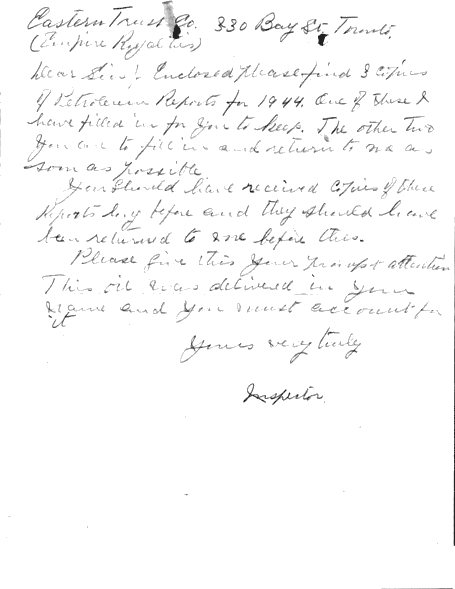 Eastern Trust Co. 330 Bay St, Toronto.
(Empire Royalties)
Dear Sir: Enclosed please find 3 copies
of Petroleum Reports for 1944. One of these I
have filled in for you to keep. The other two
you are to fill in and return to me as
soon as possible.
You should have received copies of these
reports long before and they should have
been returned to me before this.
Please give this your prompt attention
This oil was delivered in your
name and you must account for
it
Yours very truly
Inspector.